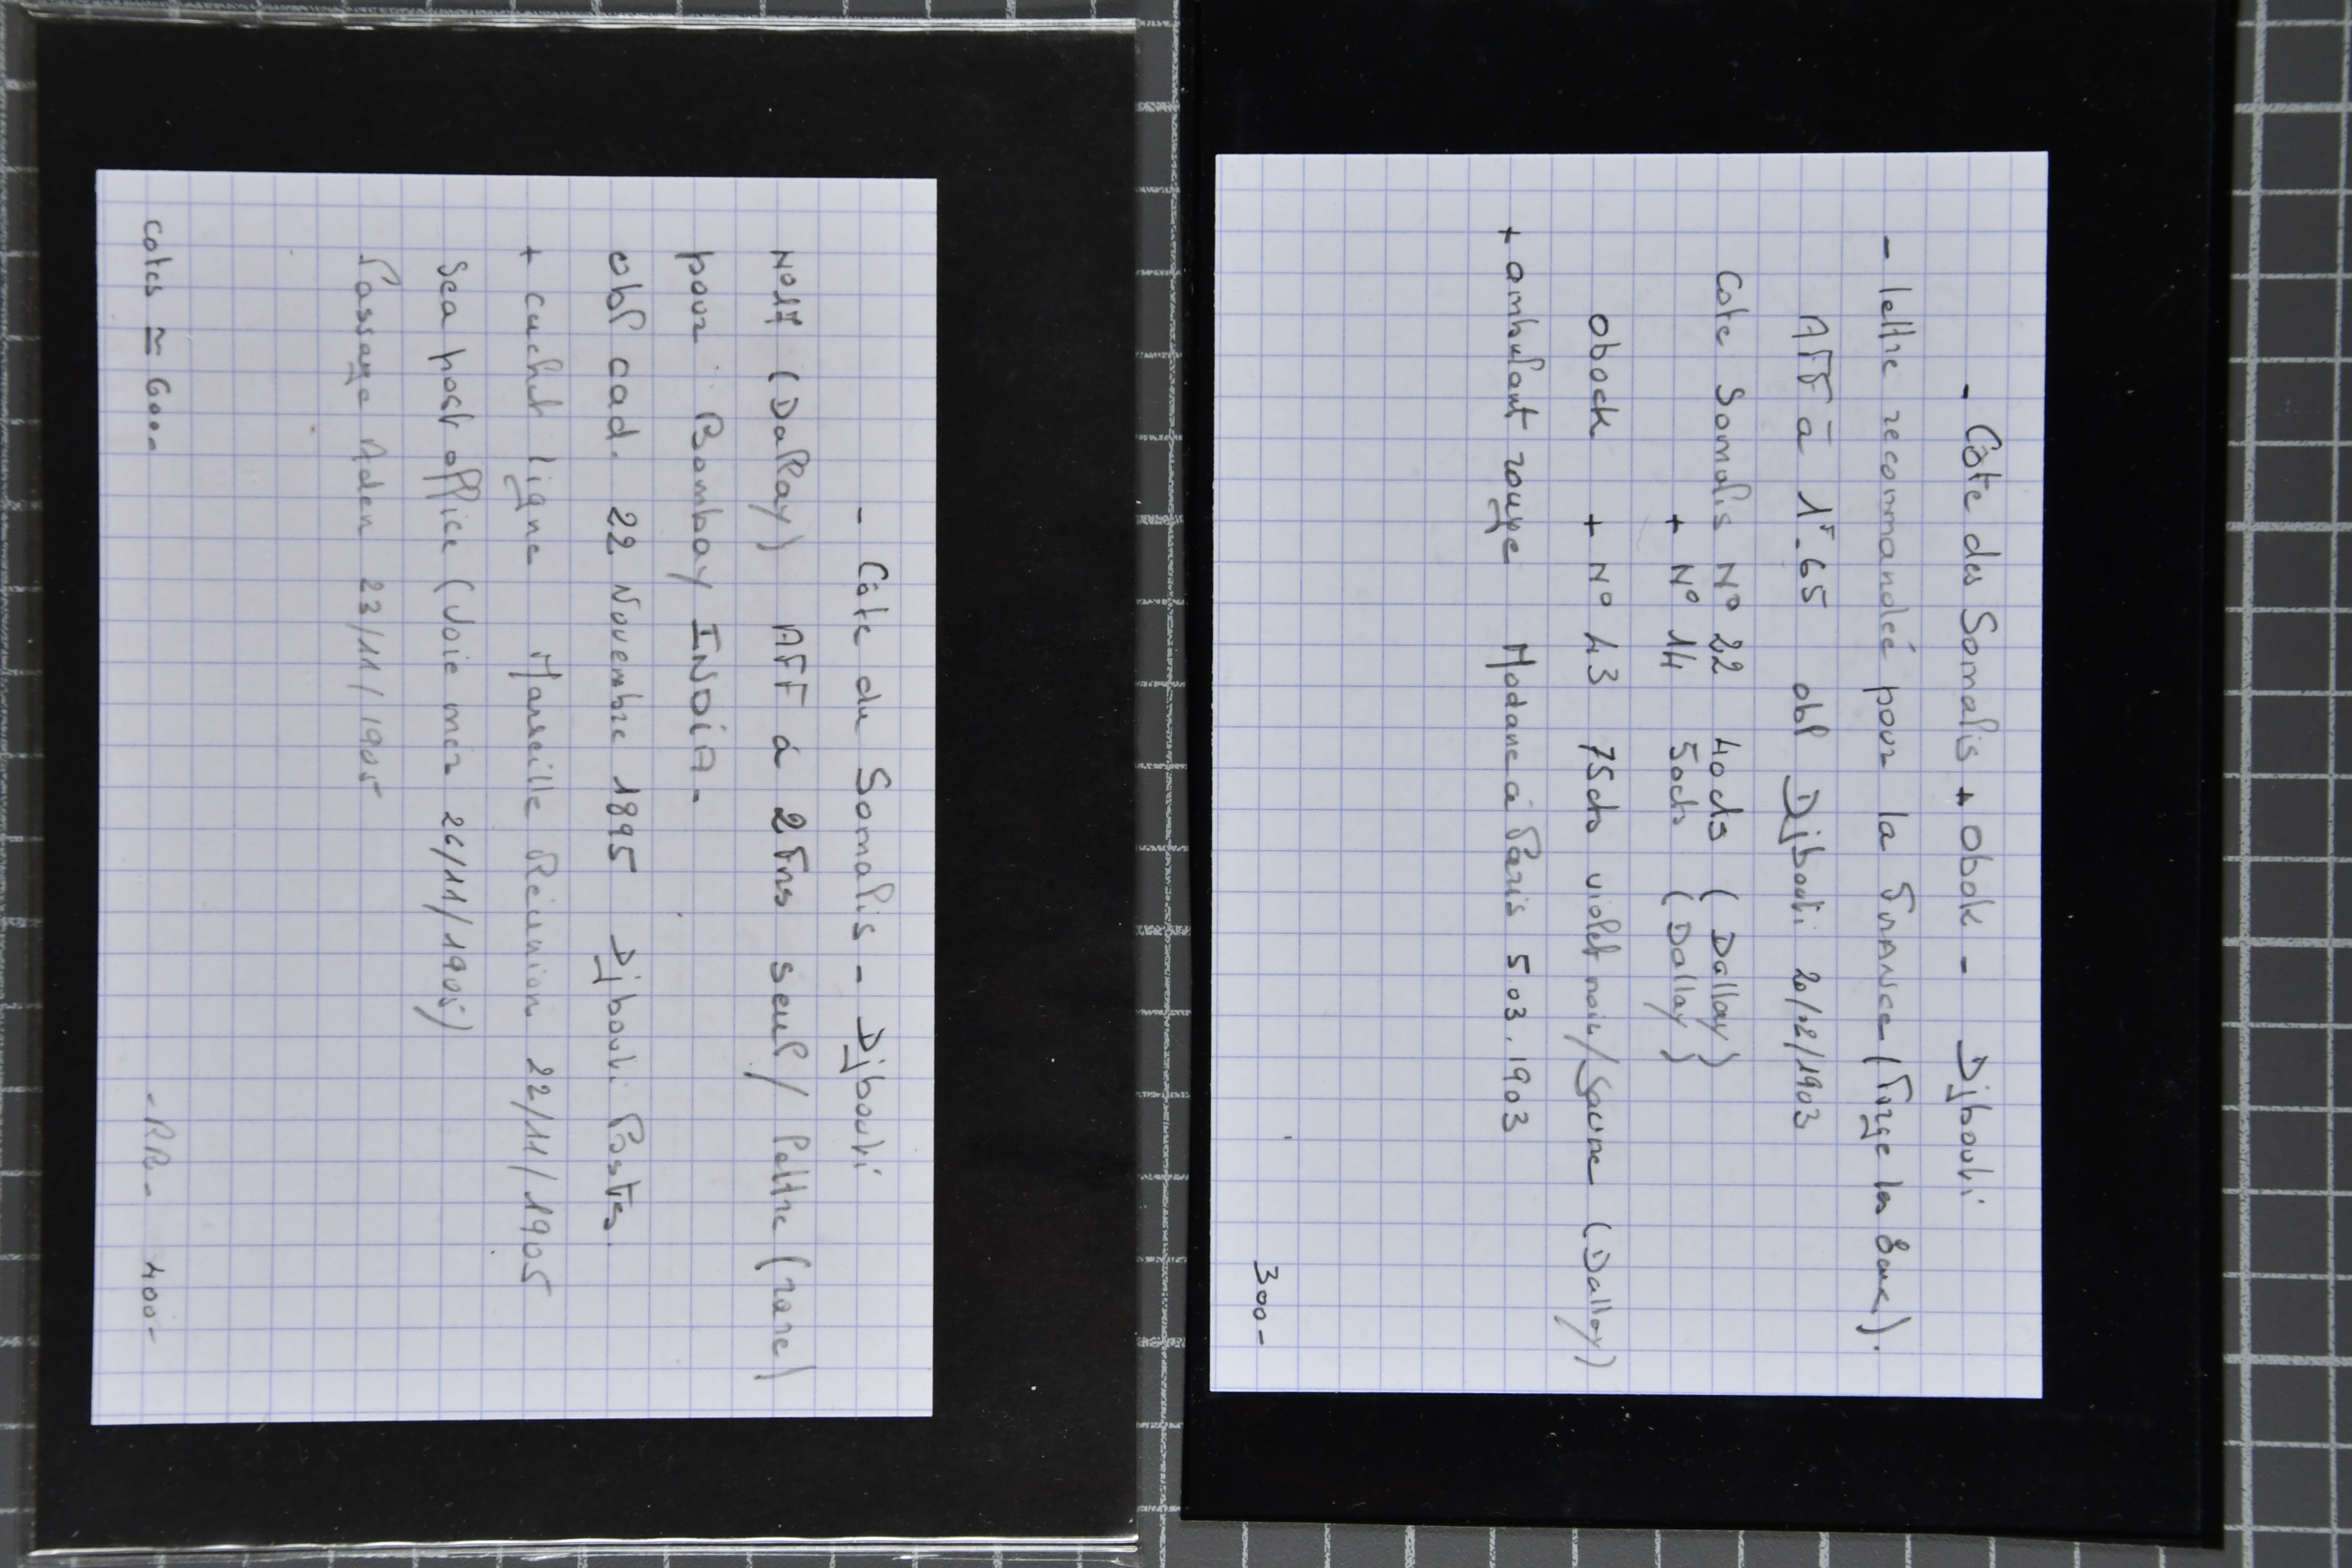 - Côte des Somalis + Obok - Djibouti
- lettre recommandée pour la France (Tizge les Bane).
AFF à 1F-65 obl Djibouti 20/02/1903
Cote Somalis N° 22 40cts (Dallay)
+ N° 14 50cts (Dallay)
obock + N° 43 75cts violet noir/Jaune (Dallay)
+ ambulant rouge Modane à Paris 5.03.1903
300-
- Côte du Somalis - Djibouti
N°17 (Dallay) AFF à 2Frs seul/lettre (rare)
pour Bombay INDIA-
obl cad. 22 Novembre 1895 Djibouti Postes.
+ cachet ligne Marseille Réunion 22/11/1905
Sea post office (Voie mer 26/11/1905)
Passage Aden 23/11/1905
cotes ≃ 600- -RR- 400-